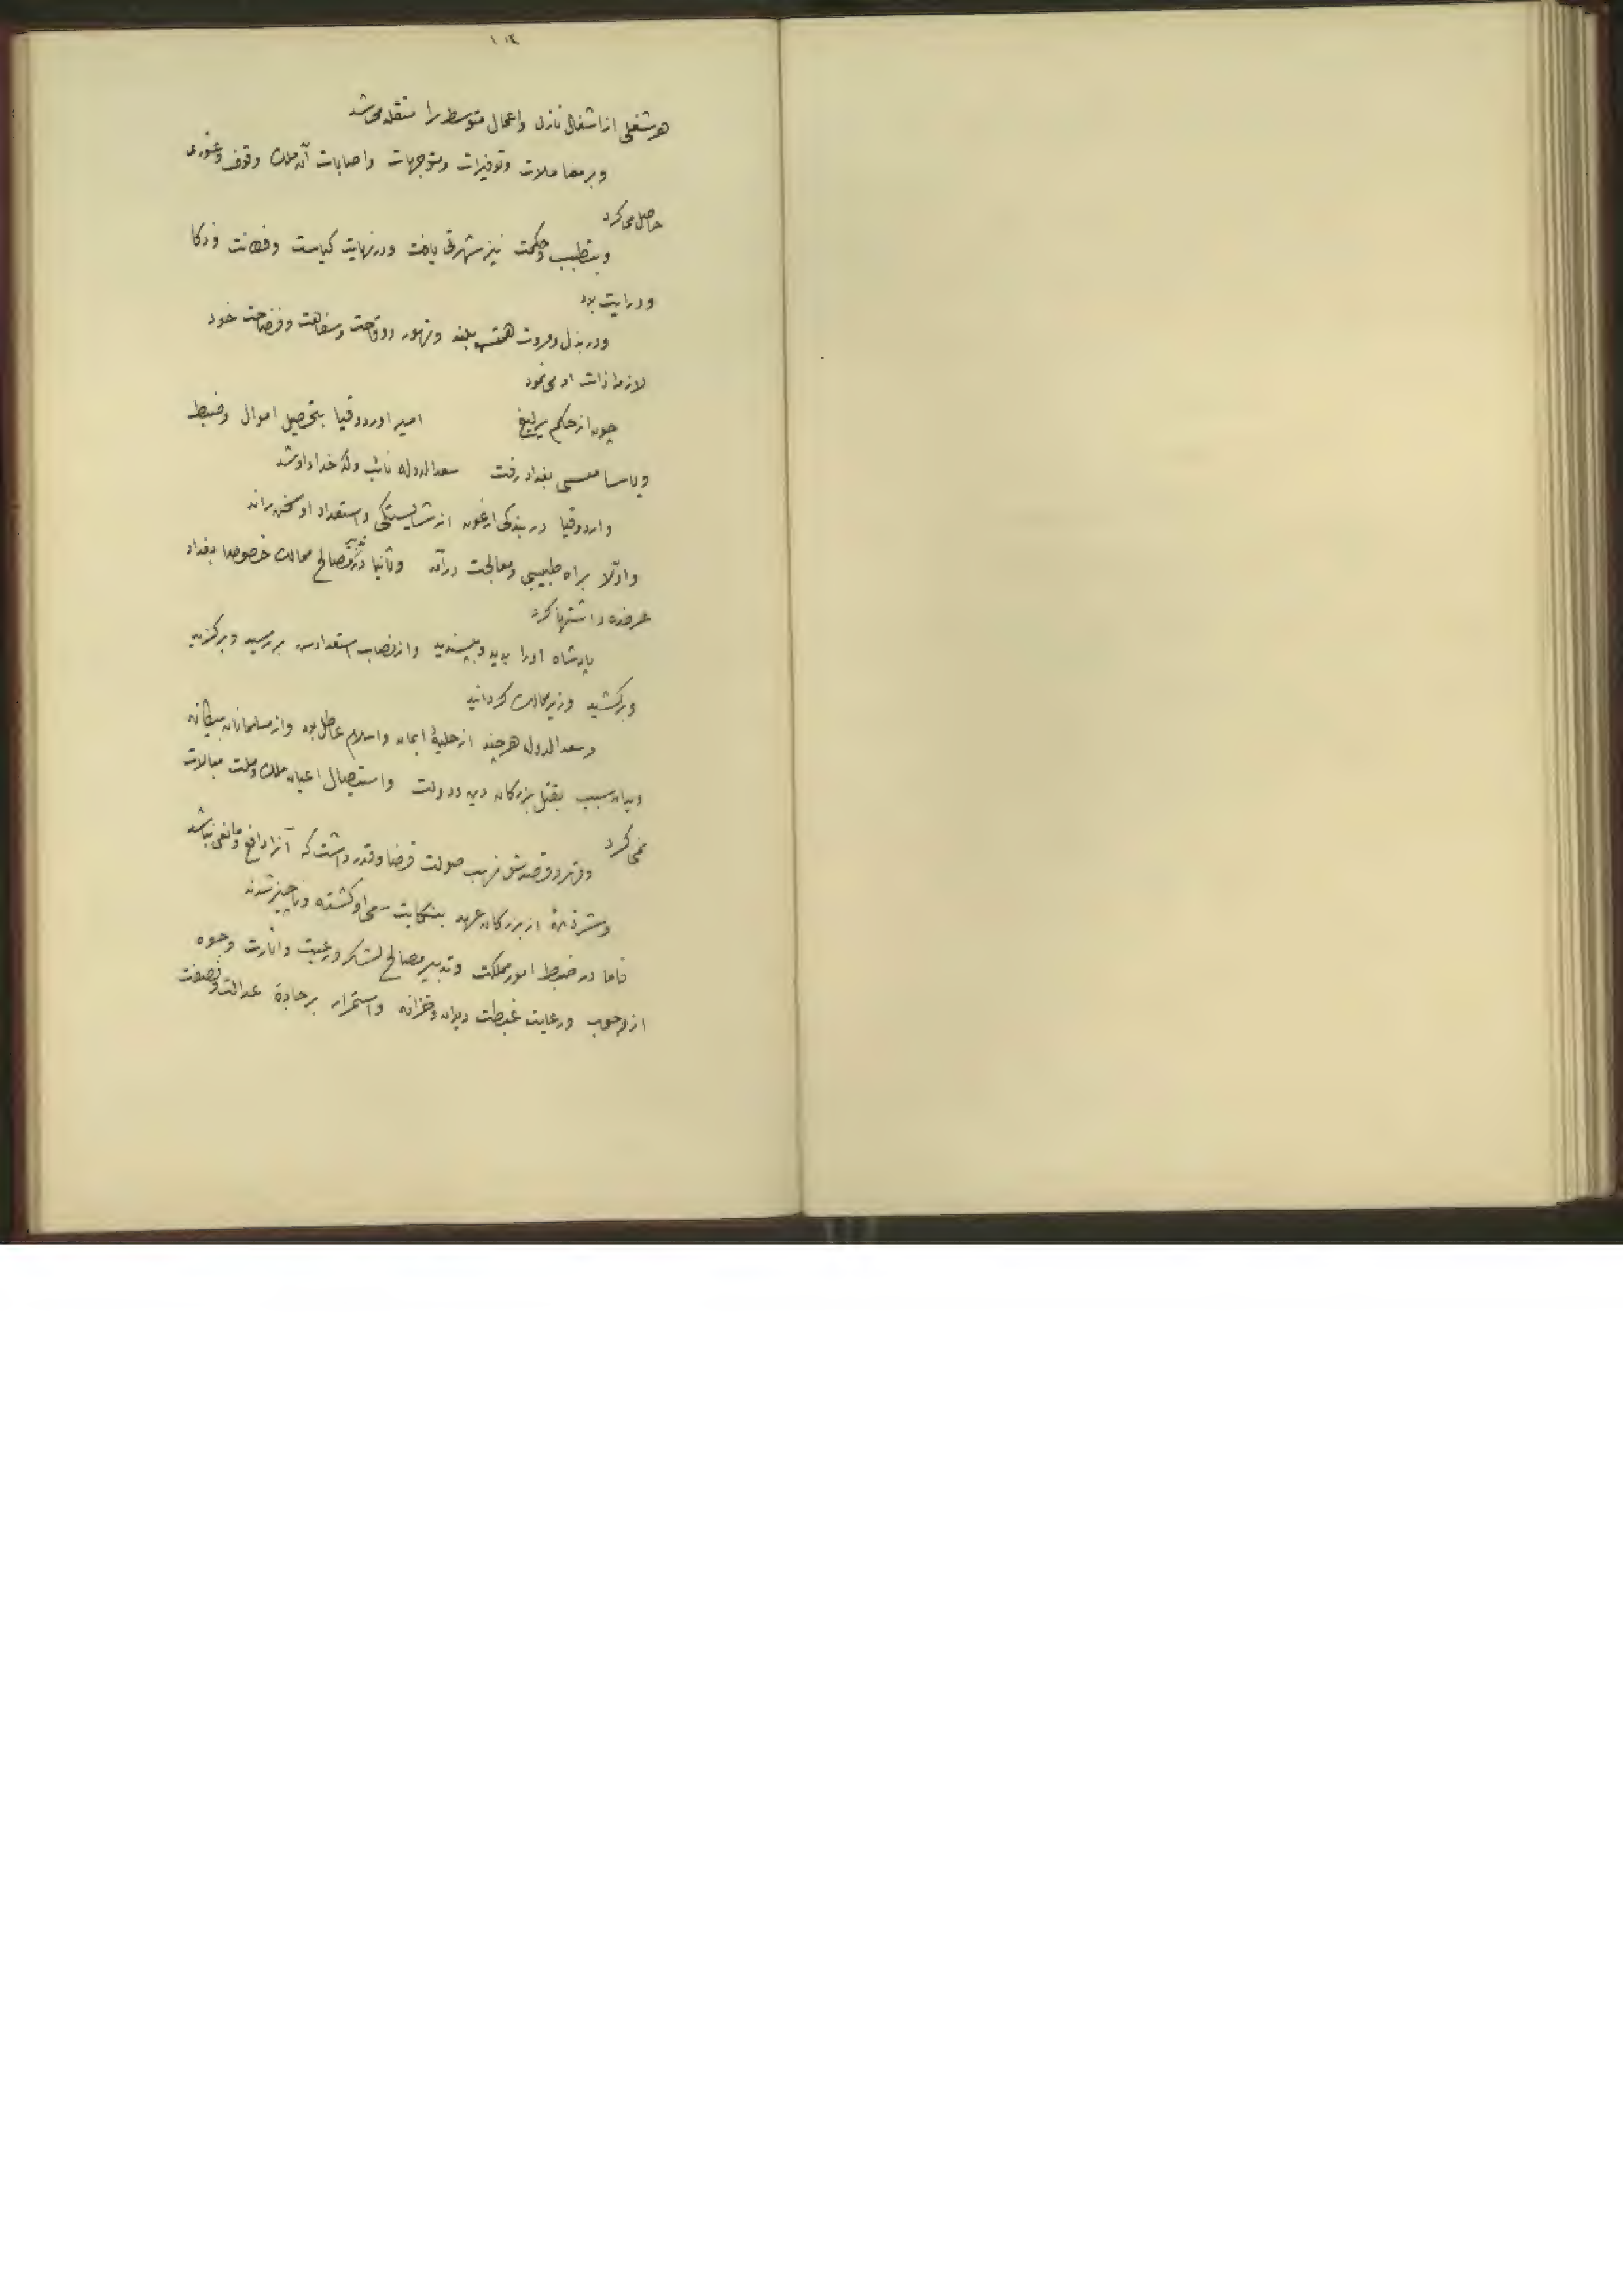 ۱۰۲
هر شغلی از اشغال نازل و اعمال متوسط را متقلد می شد
و بر معاملات و توفیرات و متوجهات و اصابات آن ملک وقوف و عثوری
حاصل می کرد
و بتطبب و حکمت نیز شهرتی یافت و در نهایت کیاست و فطانت و ذکا
و درایت بود
و در بذل و مروت همتش بلند و تهور و وقاحت و سفاهت و فضاحت خود
لازم ذات او می نمود
چون از حکم یرلیغ امیر اوردوقیا بتحصیل اموال و ضبط
و یاسامیسی بغداد رفت سعدالدوله نائب و کدخدا او شد
و اردوقیا در بندکی ارغون از شایستکی و استعداد او سخن راند
و اولا براه طبیبی و معالجت درآمد و ثانیا در تدبیر مصالح ممالک خصوصا بغداد
عرضه داشتها کرد
پادشاه او را بدید و بپسندید و از نصاب استعدادش بررسید و برکزید
و برکشید وزیر ممالک کردانید
و سعدالدوله هر چند از حلیهٔ ایمان و اسلام عاطل بود و از مسلمانان بیکانه
و بدان سبب بقتل بزرکان دین و دولت و استیصال اعیان ملک و ملت مبالات
نمی کرد
و قهر و قصدش نهیب صولت قضا و قدر داشت که آنرا دافع و مانعی نباشد
و شرذمهٔ از بزرکان عهد بنکایت سعی او کشته و ناچیز شدند
فاما در ضبط امور مملکت و تدبیر مصالح لشکر و رعیت و اثارت وجوه
از وجوب و رعایت غبطت دیوان و خزانه و استمرار بر جادهٔ عدالت و نصفت